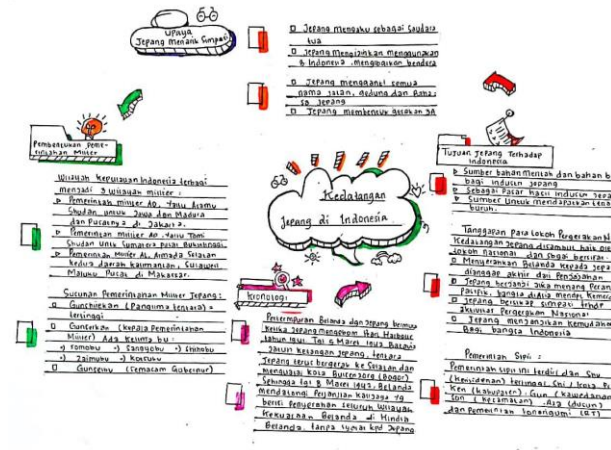 Upaya
Jepang Menarik Simpati
Jepang Mengaku sebagai Saudara
tua
Jepang Mengizinkan Menggunakan
B Indonesia, Mengibarkan bendera
Jepang Mengganti semua
nama jalan, gedung dan
Jepang
Jepang Membentuk gerakan 3A
Pembentukan Peme-
rintahan Militer
Wilayah kepulauan Indonesia terbagi
menjadi 3 wilayah militer :
Pemerintah militer AD, yaitu
untuk Jawa dan Madura
dan Pusatnya di Jakarta.
Pemerintah militer AD, yaitu Tomi
Shudan untuk Sumatera pusat Bukittinggi
Pemerintah Militer AL, Armada Selatan
kedua daerah kalimantan, Sulawesi,
Maluku Pusat di Makassar.
Susunan Pemerintahan Militer Jepang :
Gunshireikan (Panglima tentara) =
tertinggi
Gunseikan (kepala Pemerintahan
Militer) Ada kelima bu :
-) Somobu -) Sangyobu -) Shihobu
-) Zaimubu -) Kotsubu
Gunseibu (Semacam Gubernur)
Kedatangan
Jepang di Indonesia
Kronologi
Pertempuran Belanda dan Jepang bermula
Ketika Jepang Mengebom Harbour
tahun 1941. Tgl 5 Maret 1942 Batavia
Jatuh ketangan Jepang, tentara
Jepang terus bergerak ke Selatan dan
Menguasai kota Buitenzorg (Bogor)
Sehingga tgl 8 Maret 1942, Belanda
Mendatangi Perjanjian Kalijati yg
berisi Penyerahan Seluruh Wilayah
Kekuasaan Belanda di Hindia
Belanda, tanpa syarat kpd Jepang
Tujuan Jepang Terhadap
Indonesia
Sumber bahan Mentah dan bahan b
bagi industri Jepang
Sebagai Pasar Hasil industri Jepa
Sumber Untuk Mendapatkan tena
buruh.
Tanggapan Para tokoh Pergerakan N
Kedatangan Jepang disambut baik ole
tokoh nasional dan
Menyerahkan Belanda kepada Jepa
dianggap akhir dari Penjajahan
Jepang berjanji jika menang Peran
Pasifik, bangsa diAsia Mendpt Kemer
Jepang bersikap simpati
aktivitas Pergerakan Nasional
Jepang Menjanjikan Kemudahan
Bagi bangsa Indonesia
Pemerintah Sipil :
Pemerintah sipil ini terdiri dari Shu
(keresidenan) tertinggi, Shi / kota,
Ken (kabupaten), Gun (kawedanan)
Son (kecamatan), Aza (dusun)
dan Pemerintah Tonarigumi (RT)